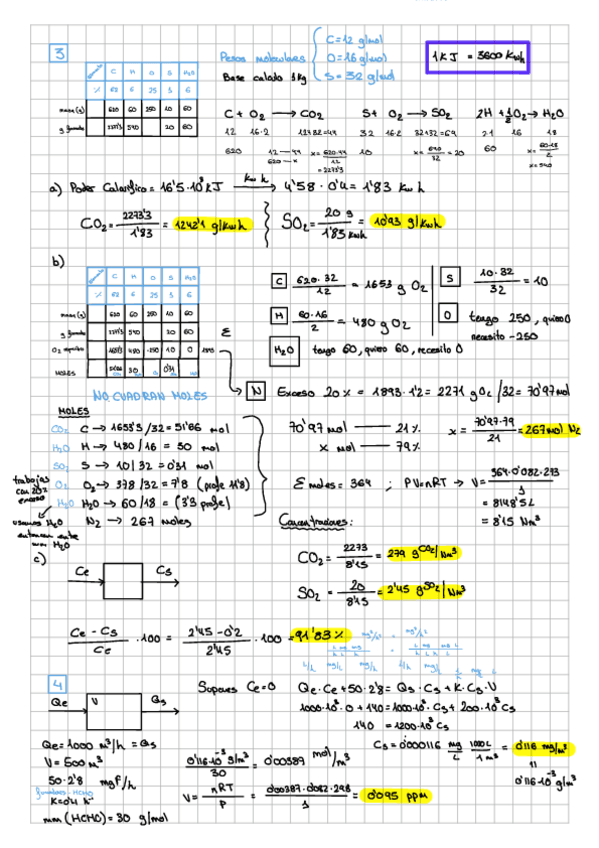 3
Pesos moleculares { C=12 g/mol
O=16 g/mol
S=32 g/mol
1KJ = 3600 Kwh
Base calculo 1Kg
C H O S H₂O
% 62 6 25 1 6
masa (g) 620 60 250 10 60
g formados 2273'3 540 20 60
C + O₂ → CO₂ S + O₂ → SO₂ 2H + ½O₂ → H₂O
12 16·2 12+32=44 32 16·2 32+32=64 2·1 16 18
620 12 — 44 x = 620·44/12 10 x = 640/32 = 20 60 x = 60·18/2
620 — x = 2273'3 x = 540
a) Poder Calorifico = 16'5·10³ KJ —Kwh→ 4'58 · 0'4 = 1'83 Kwh
CO₂ = 2273'3/1'83 = 1242'1 g/Kwh SO₂ = 20 g/1'83 Kwh = 10'93 g/Kwh
b)
C H O S H₂O
% 62 6 25 1 6
masa (g) 620 60 250 10 60
g formados 2273'3 540 20 60
O₂ 1653'3 480 -250 10 0 1893
MOLES 51'66 30 0'31
Σ
C 620·32/12 = 1653 g O₂ S 10·32/32 = 10
H 60·16/2 = 480 g O₂ O tengo 250, quiero 0
necesito -250
H₂O tengo 60, quiero 60, necesito 0
N Exceso 20% = 1893·1'2 = 2271 g O₂ /32 = 70'97 mol
NO CUADRAN MOLES
MOLES
CO₂ C → 1653'3/32 = 51'66 mol
H₂O H → 480/16 = 30 mol
SO₂ S → 10/32 = 0'31 mol
O₂ O₂ → 378/32 = 7'8 (profe 11'8)
H₂O H₂O → 60/18 = (3'3 profe)
N₂ → 267 moles
trabajas con 20% exceso
70'97 mol — 21% x = 70'97·79/21 = 267 mol N₂
x mol — 79%
Σ moles = 364 ; PV=nRT → V = 364·0'082·273/1
= 8148'5 L
= 8'15 Nm³
Concentraciones:
CO₂ = 2273/8'15 = 279 gCO₂/Nm³
SO₂ = 20/8'15 = 2'45 gSO₂/Nm³
c)
Ce Cs
Ce - Cs/Ce · 100 = 2'45 - 0'2/2'45 · 100 = 91'83 %
4
Qe V Qs
Suponer Ce=0 Qe·Ce + 50·2'8 = Qs·Cs + K·Cs·V
1000·10³·0 + 140 = 1000·10³·Cs + 200·10³ Cs
140 = 1200·10³ Cs
Cs = 0'000116 mg/L 1000L/1 m³ = 0'116 mg/m³
0'116·10⁻³ g/m³
Qe = 1000 m³/h = Qs
V = 500 m³
50·2'8 mg/h
fumadores - HCHO
K = 0'4 h⁻
mm (HCHO) = 30 g/mol
0'116·10⁻³ g/m³/30 = 0'00387 mol/m³
V = nRT/P = 0'00387·0'082·298/1 = 0'095 ppm